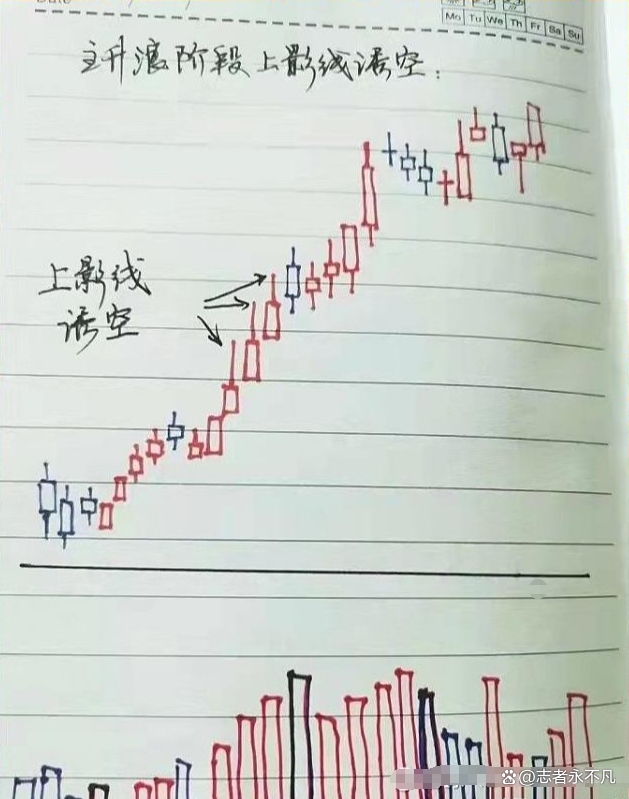 Date / /
Mo Tu We Th Fr Sa Su
主升浪阶段上影线诱空:
上影线
诱空
@志者永不凡